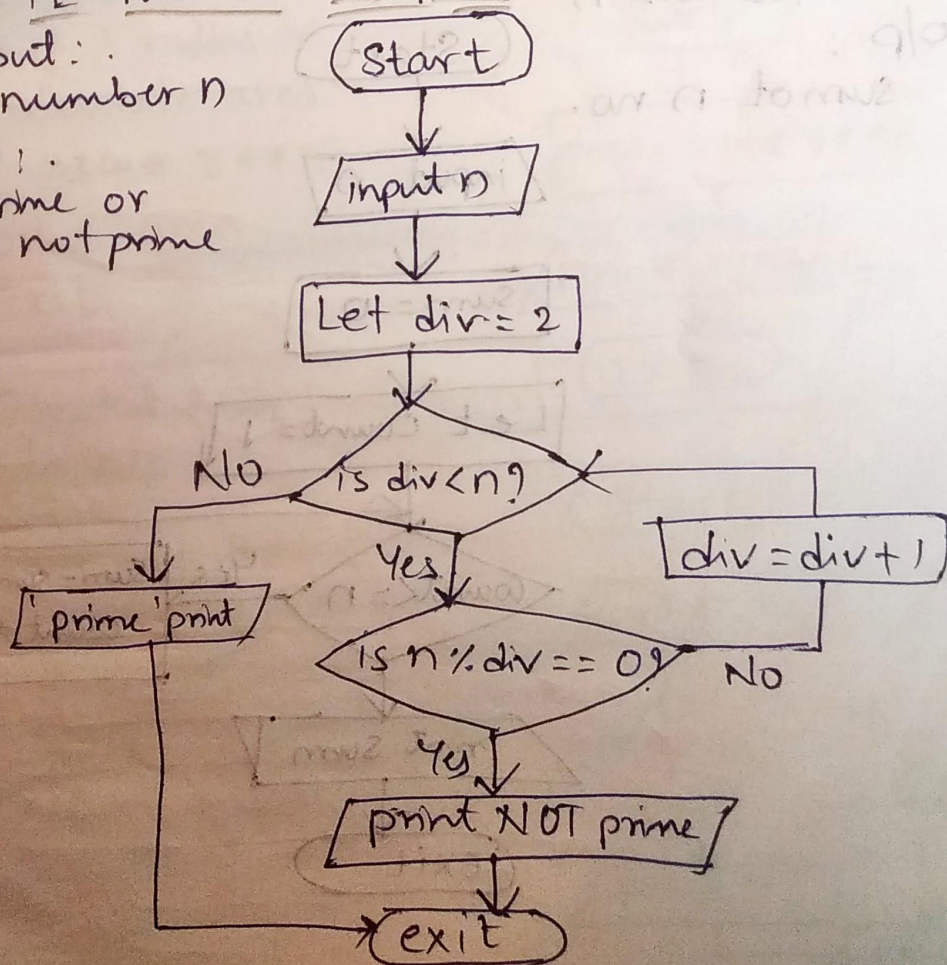 out:
number n
or
not prime
Start
input n
Let div = 2
is div < n?
NO
Yes
div = div + 1
'prime' print
is n % div == 0?
NO
Yes
print NOT prime
exit